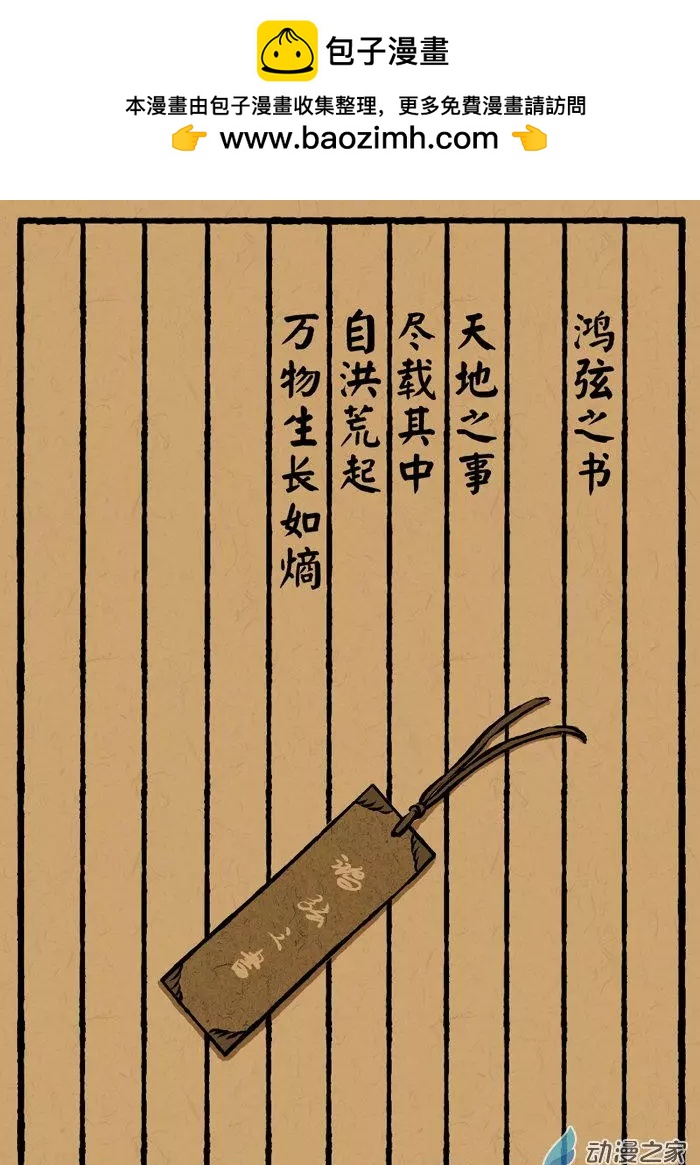 包子漫畫
本漫畫由包子漫畫收集整理，更多免費漫畫請訪問
👉 www.baozimh.com 👈
鸿弦之书
天地之事
尽载其中
自洪荒起
万物生长如熵
鴻弦之書
动漫之家